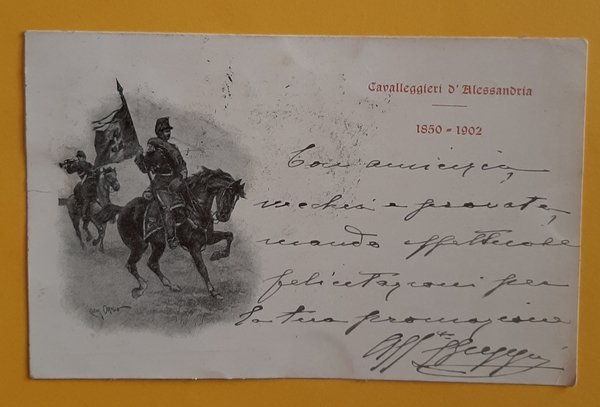 Cavalleggieri d'Alessandria
1850 - 1902
Con amicizia,
vecchia e provata,
mando affettuose
felicitazioni per
la tua promozione
Aff